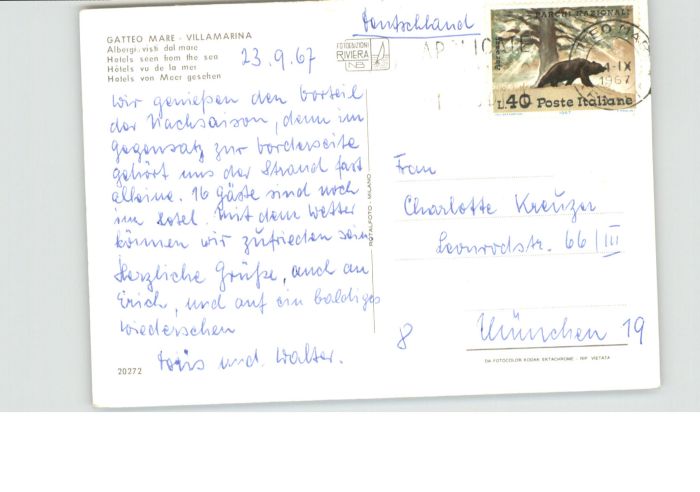 GATTEO MARE - VILLAMARINA
Alberghi visti dal mare
Hotels seen from the sea
Hôtels vu de la mer
Hotels von Meer gesehen
23.9.67
FOTOEDIZIONI
RIVIERA
NB
Deutschland
PARCHI NAZIONALI
L.40 Poste Italiane
1967
-IX
1967
Wir genießen den Vorteil
der Nachsaison, denn im
Gegensatz zur Vorderseite
gehört uns der Strand fast
alleine. 16 Gäste sind noch
im Hotel. Mit dem Wetter
können wir zufrieden sein
Herzliche Grüße, auch an
Erich, und auf ein baldiges
Wiedersehen
Doris und Walter.
20272
ROTALFOTO - MILANO
Frau
Charlotte Kreuzer
Leonrodstr. 66/III
8 München 19
DA FOTOCOLOR KODAK EKTACHROME - RIP. VIETATA